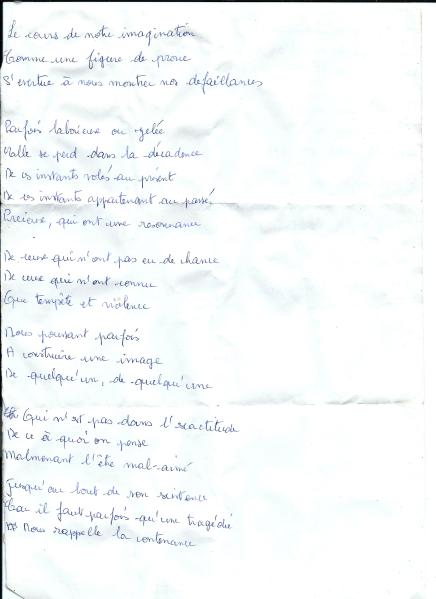 Le cours de notre imagination
Comme une figure de proue
S'evertue à nous montrer nos defaillances
Parfois laborieuse ou gelée
se perd dans la décadence
De ces instants volés au présent
De ces instants appartenant au passé,
Precieux, qui ont une resonnance
De ceux qui n'ont pas eu de chance
De ceux qui n'ont connu
Que tempête et violence
Nous poussant parfois
A construire une image
De quelqu'un, de quelqu'une
Qui n'est pas dans l'exactitude
De ce à quoi on pense
Malmenant l'être mal-aimé
Jusqu'au bout de son
Car il faut parfois qu'une tragédie
Nous rappelle la contenance